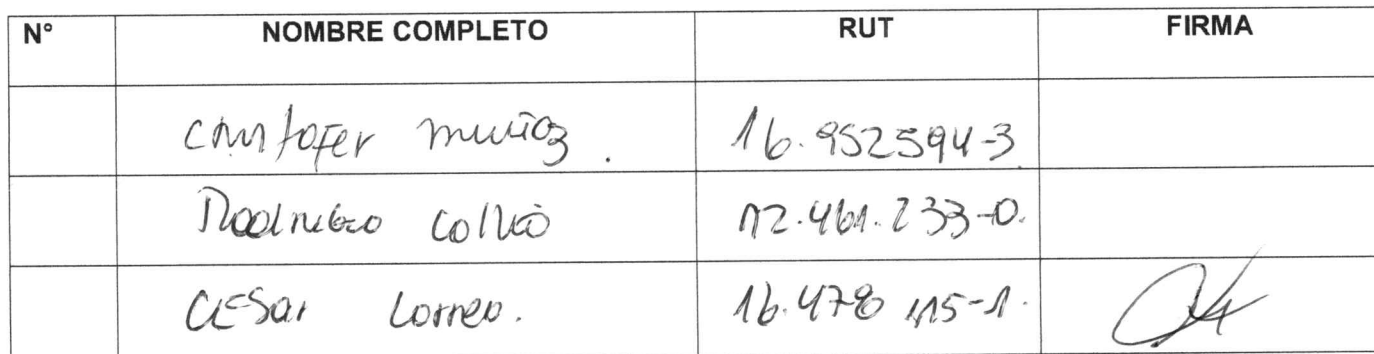 N° NOMBRE COMPLETO RUT FIRMA
Cristofer muñoz. 16.952594-3
Rodrigo Collio 12.461.233-0.
CESar Correo. 16.478 115-1.